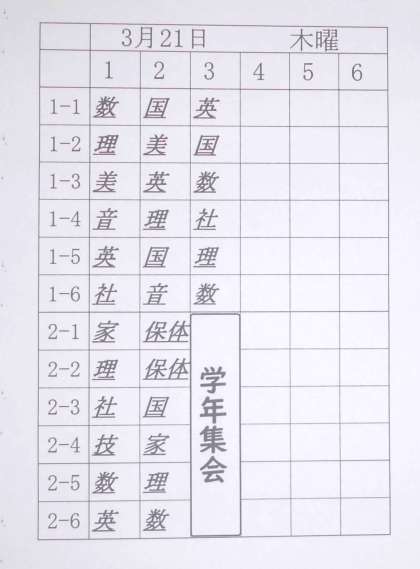 3月21日 木曜
1 2 3 4 5 6
1-1 数 国 英
1-2 理 美 国
1-3 美 英 数
1-4 音 理 社
1-5 英 国 理
1-6 社 音 数
2-1 家 保体
2-2 理 保体
2-3 社 国
2-4 技 家
2-5 数 理
2-6 英 数
学年集会